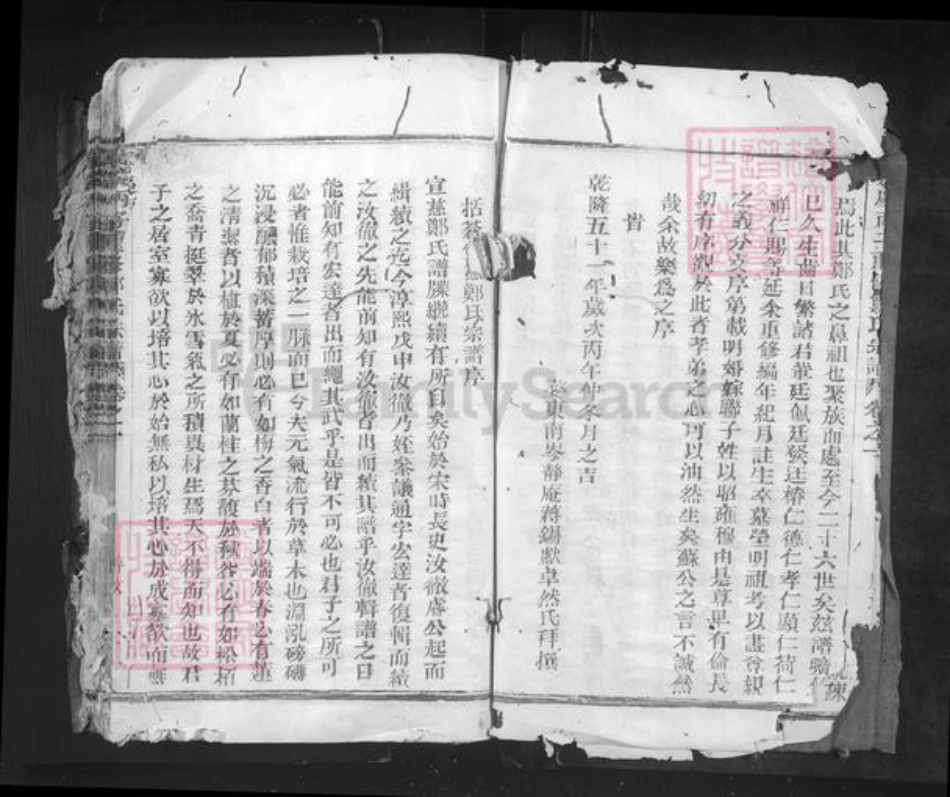 焉此其鄭氏之鼻祖也聚族而處至今二十六世矣兹譜
已久生齒日繁諸君華廷佩廷發廷椿仁德仁孝仁顯仁荷仁
祥仁賜等延余重修編年紀月註生卒墓塋明祖考以盡尊親
之義分次序第載明婚嫁聯子姓以昭雍穆由是尊卑有倫長
幼有序觀於此者孝弟之心可以油然生矣蘇公之言不誠然
哉余故樂爲之序
旹
乾隆五十一年歲次丙午仲冬月之吉
婺東南岑靜庵蔣錫獻卓然氏拜撰
括蒼 鄭氏宗譜序
宣慈鄭氏譜牒繼續有所自矣始於宋時長史汝徹虞公起而
緝續之迄今淳熙戊申汝徹乃姪叅議通字宏達者復輯而續
之汝徹之先能前知有汝徹者出而續其譜乎汝徹輯譜之日
能前知有宏達者出而繩其武乎是皆不可必也君子之所可
必者惟栽培之一脈而已今夫元氣流行於草木也淵泓磅礴
沉浸醲郁積深蓄厚則必有如梅之香白者以端於春必有蓮
之清潔者以植於夏必有如蘭桂之芬馥於秋谷必有如松栢
之喬青挺翠於氷雪氣之所積異材生焉天不得而知也故君
子之居室寡欲以培其心於始無私以培其心於成寡欲而無
FamilySearch